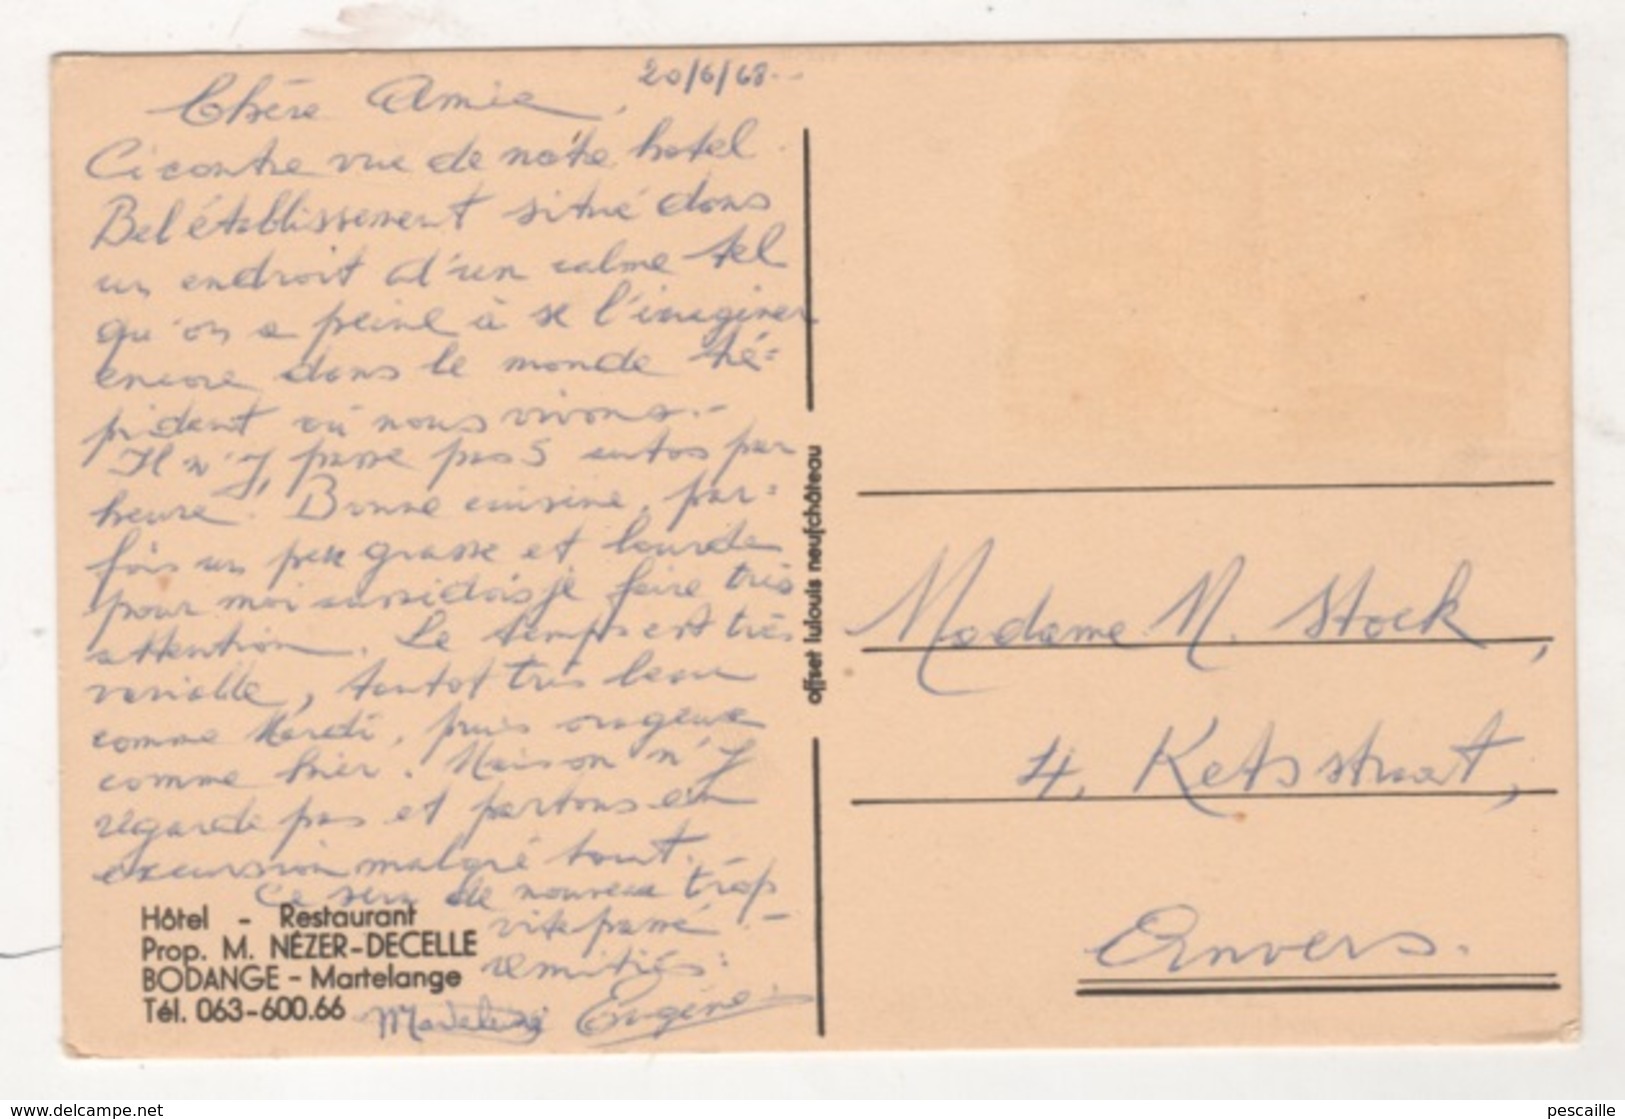 20/6/68.-
Chère Amie,
Ci contre vue de nôtre hotel
Bel établissement situé dans
un endroit d'un calme tel
qu'on a peine à se l'imaginer
encore dans le monde tré=
pident où nous vivons.-
Il n'y passe pas 5 autos par
heure. Bonne cuisine, par=
fois un peu grasse et lourde
pour moi aussi dois je faire très
attention. Le temps est très
variable, tantot très beau
comme Mardi, puis orageux
comme hier. Maison n'y
regarde pas et partons en
excursion malgré tout.
Ce sera de nouveau trop
vite passé.-
amitiés:
Madeleine Eugène
Hôtel - Restaurant
Prop. M. NÉZER-DECELLE
BODANGE - Martelange
Tél. 063-600.66
offset lulouis neufchâteau
Madame N. Stock,
4, Ketsstraat,
Anvers.
www.delcampe.net
pescaille